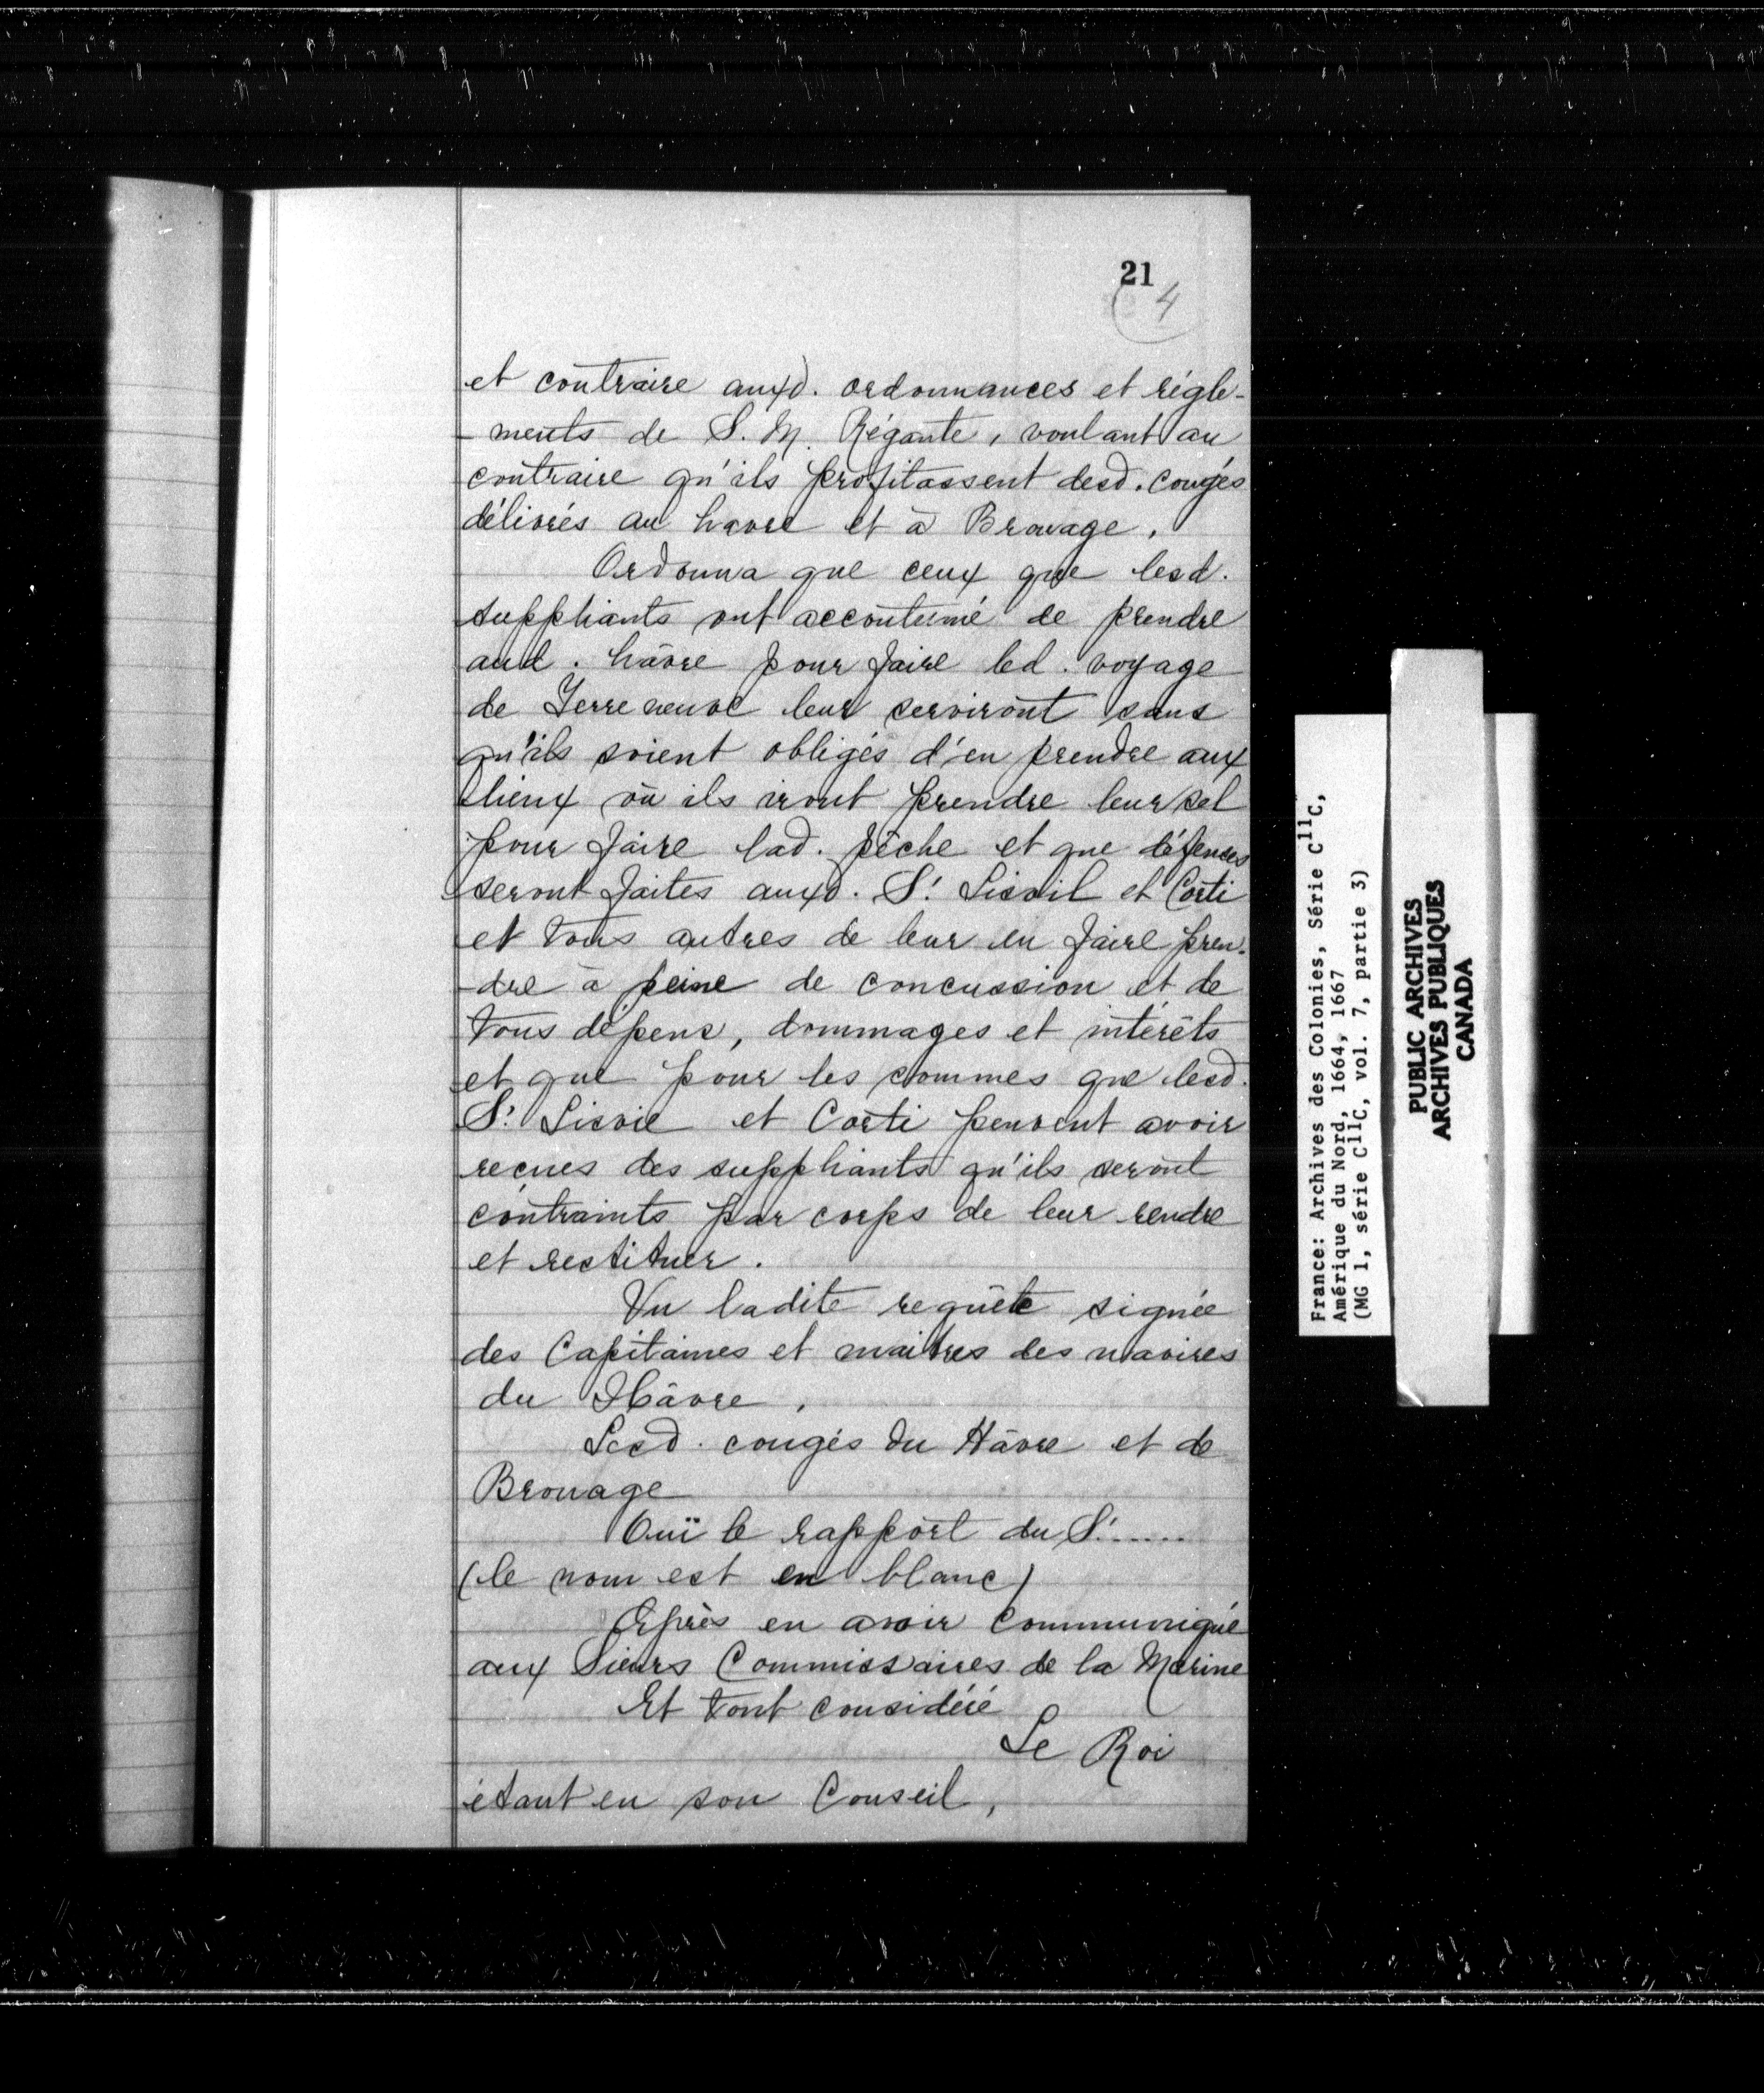 21
4
et contraire auxd. ordonnances et régle-
-ments de S. M. Régante, voulant au
contraire qu'ils profitassent desd. congés
délivrés au havre et à Brouage.
Ordonna que ceux que lesd.
suppliants ont accoutumé de prendre
aud. hâvre pour faire led. voyage
de Terreneuve leur serviront sans
qu'ils soient obligés d'en prendre aux
lieux où ils iront prendre leur sel
pour faire lad. pêche et que défenses
seront faites auxd. Sr. Lisvil et Corti
et tous autres de leur en faire pren-
-dre à peine de concussion et de
tous dépens, dommages et intérêts
et que pour les sommes que lesd.
Sr. Lisvie et Corti peuvent avoir
reçues des suppliants qu'ils seront
contraints par corps de leur rendre
et restituer.
Vu ladite requête signée
des Capitaines et maitres des navires
du Hâvre,
Lesd. congés du Hâvre et de
Brouage
Ouï le rapport du Sr......
(le nom est en blanc)
Après en avoir communiqué
aux Sieurs Commissaires de la Marine
Et tout considéré
Le Roi
étant en son Conseil,
France: Archives des Colonies, Série C11C,
Amérique du Nord, 1664, 1667
(MG 1, série C11C, vol. 7, partie 3)
PUBLIC ARCHIVES
ARCHIVES PUBLIQUES
CANADA